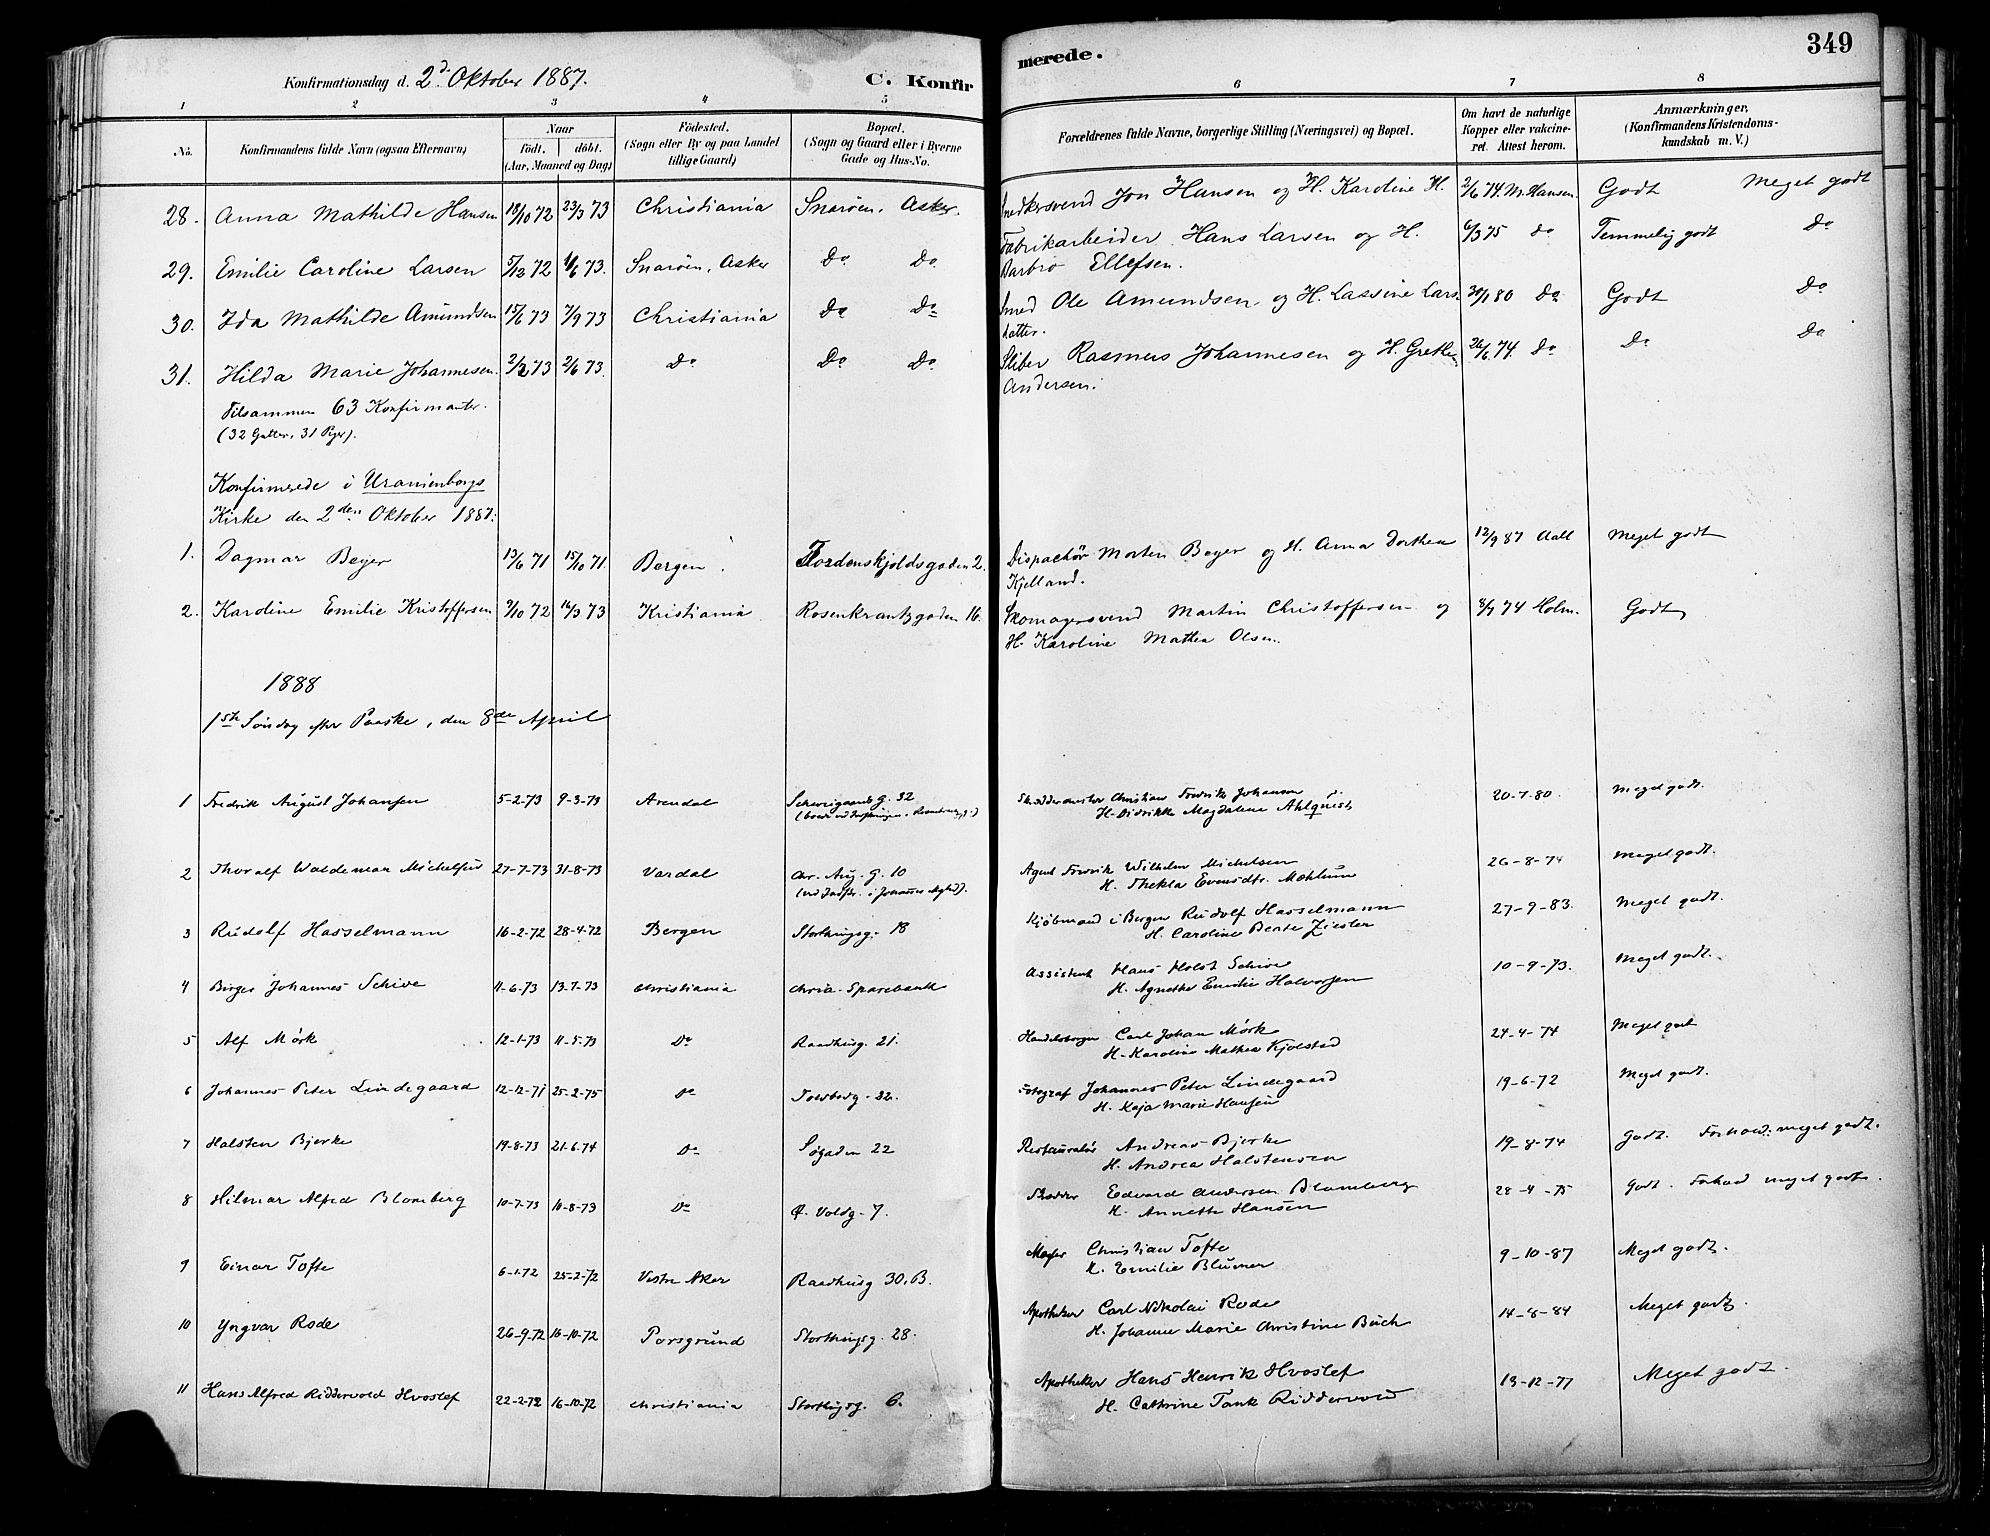 349
Konfirmationsdag d. 2d Oktober 1887.
C. Konfirmerede.
1 2 3 4 5 6 7 8
No.
Konfirmandens fulde Navn (ogsaa Efternavn)
Naar
født. døbt.
(Aar, Maaned og Dag)
Födested.
(Sogn eller By og paa Landet
tillige Gaard)
Bopæl.
(Sogn og Gaard eller i Byerne
Gade og Hus-No.
Forældrenes fulde Navne, borgerlige Stilling (Næringsvei) og Bopæl.
Om havt de naturlige
Kopper eller vakcine-
ret. Attest herom.
Anmærkninger,
(Konfirmandens Kristendoms-
kundskab m. V.)
28. Anna Mathilde Hansen 18/10 72 23/3 73 Christiania Snarøen, Asker. Smedkersvend Jon Hansen og H. Karoline H. 2/6 74. M. Hansen Godt Meget godt
29. Emilie Caroline Larsen 5/12 72 1/6 73. Snarøen, Asker Do Do Fabrikarbeider Hans Larsen og H. 6/3 75 do Temmelig godt Do
Barbro Ellefsen.
30. Ida Mathilde Amundsen 15/6 73 7/9 73 Christiania Do Do Smed Ole Amundsen og H. Lassine Lars- 30/1 80 Do Godt Do
datter.
31. Hilda Marie Johannesen. 2/2 73 2/6 73. Do Do Do Sliber Rasmus Johannesen og H. Grethe 26/6 74. Do Do Do
Andersen.
Tilsammen 63 Konfirmanter.
(32 Gutter, 31 Piger).
Konfirmerede i Uranienborgs
Kirke den 2den Oktober 1887:
1. Dagmar Beyer 13/6 71 15/10 71. Bergen. Tordenskjoldsgaden 2. Dispachør Morten Beyer og H. Anna Dorthea 12/9 87 Aall Meget godt
Kjelland.
2. Karoline Emilie Kristoffersen 9/10 72 16/3 73 Kristiania Rosenkrantzgaden 16. Skomagersvend Martin Christoffersen og 8/7 74 Holm. Godt
H. Karoline Mathea Olsen.
1888
1ste Søndag efter Paaske, den 8de April
1 Fredrik August Johansen 5-2-73 9-3-73 Arendal Schweigaards g. 32 Skræddermester Christian Fredrik Johansen 20-7-80. Meget godt.
H. Didrikke Magdalene Ahlquist
2 Thoralf Waldemar Michelsen 27-7-73 31-8-73 Vardal Chr. Aug. G. 10 Agent Fredrik Wilhelm Michelsen 26-8-74 Meget godt.
H. Thekla Evensdtr. Mæhlum
3 Rudolf Hasselmann 16-2-72 28-4-72 Bergen Storthingsg. 18 Kjøbmand i Bergen Rudolf Hasselmann 27-9-83. Meget godt.
H. Caroline Beate Ziesler
4 Birger Johannes Schive 11-6-73 13-7-73 Christiania Chria. Sparebank Assistent Hans Holst Schive 10-9-73. Meget godt.
H. Agnethe Emilie Halvorsen
5 Alf Mørk 12-1-73 11-5-73 Do Raadhusg. 21. Handelsborger Carl Johan Mørk 24-4-74 Meget godt
H. Karoline Mathea Kjølstad
6 Johannes Peter Lindegaard 12-12-71 25-2-75 Do Toldbodg. 22. Fotograf Johannes Peter Lindegaard 19-6-72 Meget godt.
H. Kaja Marie Hansen
7 Halsten Bjerke 19-8-73 21-6-74 Do Søgaden 22 Restauratør Andreas Bjerke 19-8-74 Godt. Forhold: meget godt.
H. Andrea Halstensen
8 Hilmar Alfred Blomberg 10-7-73 16-8-73 Do Ø. Voldg. 7. Skrædder Edvard Andersen Blomberg 28-4-75 Godt. Forhold meget godt.
H. Annette Hansen
9 Einar Tofte 6-1-72 25-2-72 Vestre Aker Raadhusg 30. B. Mægler Christian Tofte 9-10-87 Meget godt.
H. Emilie Blumer
10 Yngvar Rode 26-9-72 16-10-72 Porsgrund Storthingsg. 28. Apotheker Carl Nikolai Rode 14-8-84 Meget godt.
H. Johanne Marie Christine Buch
11 Hans Alfred Riddervold Hvoslef 22-2-72 16-10-72 Christiania Storthingsg. 6. Apotheker Hans Henrik Hvoslef 13-12-77 Meget godt.
H. Cathrine Tank Riddervold